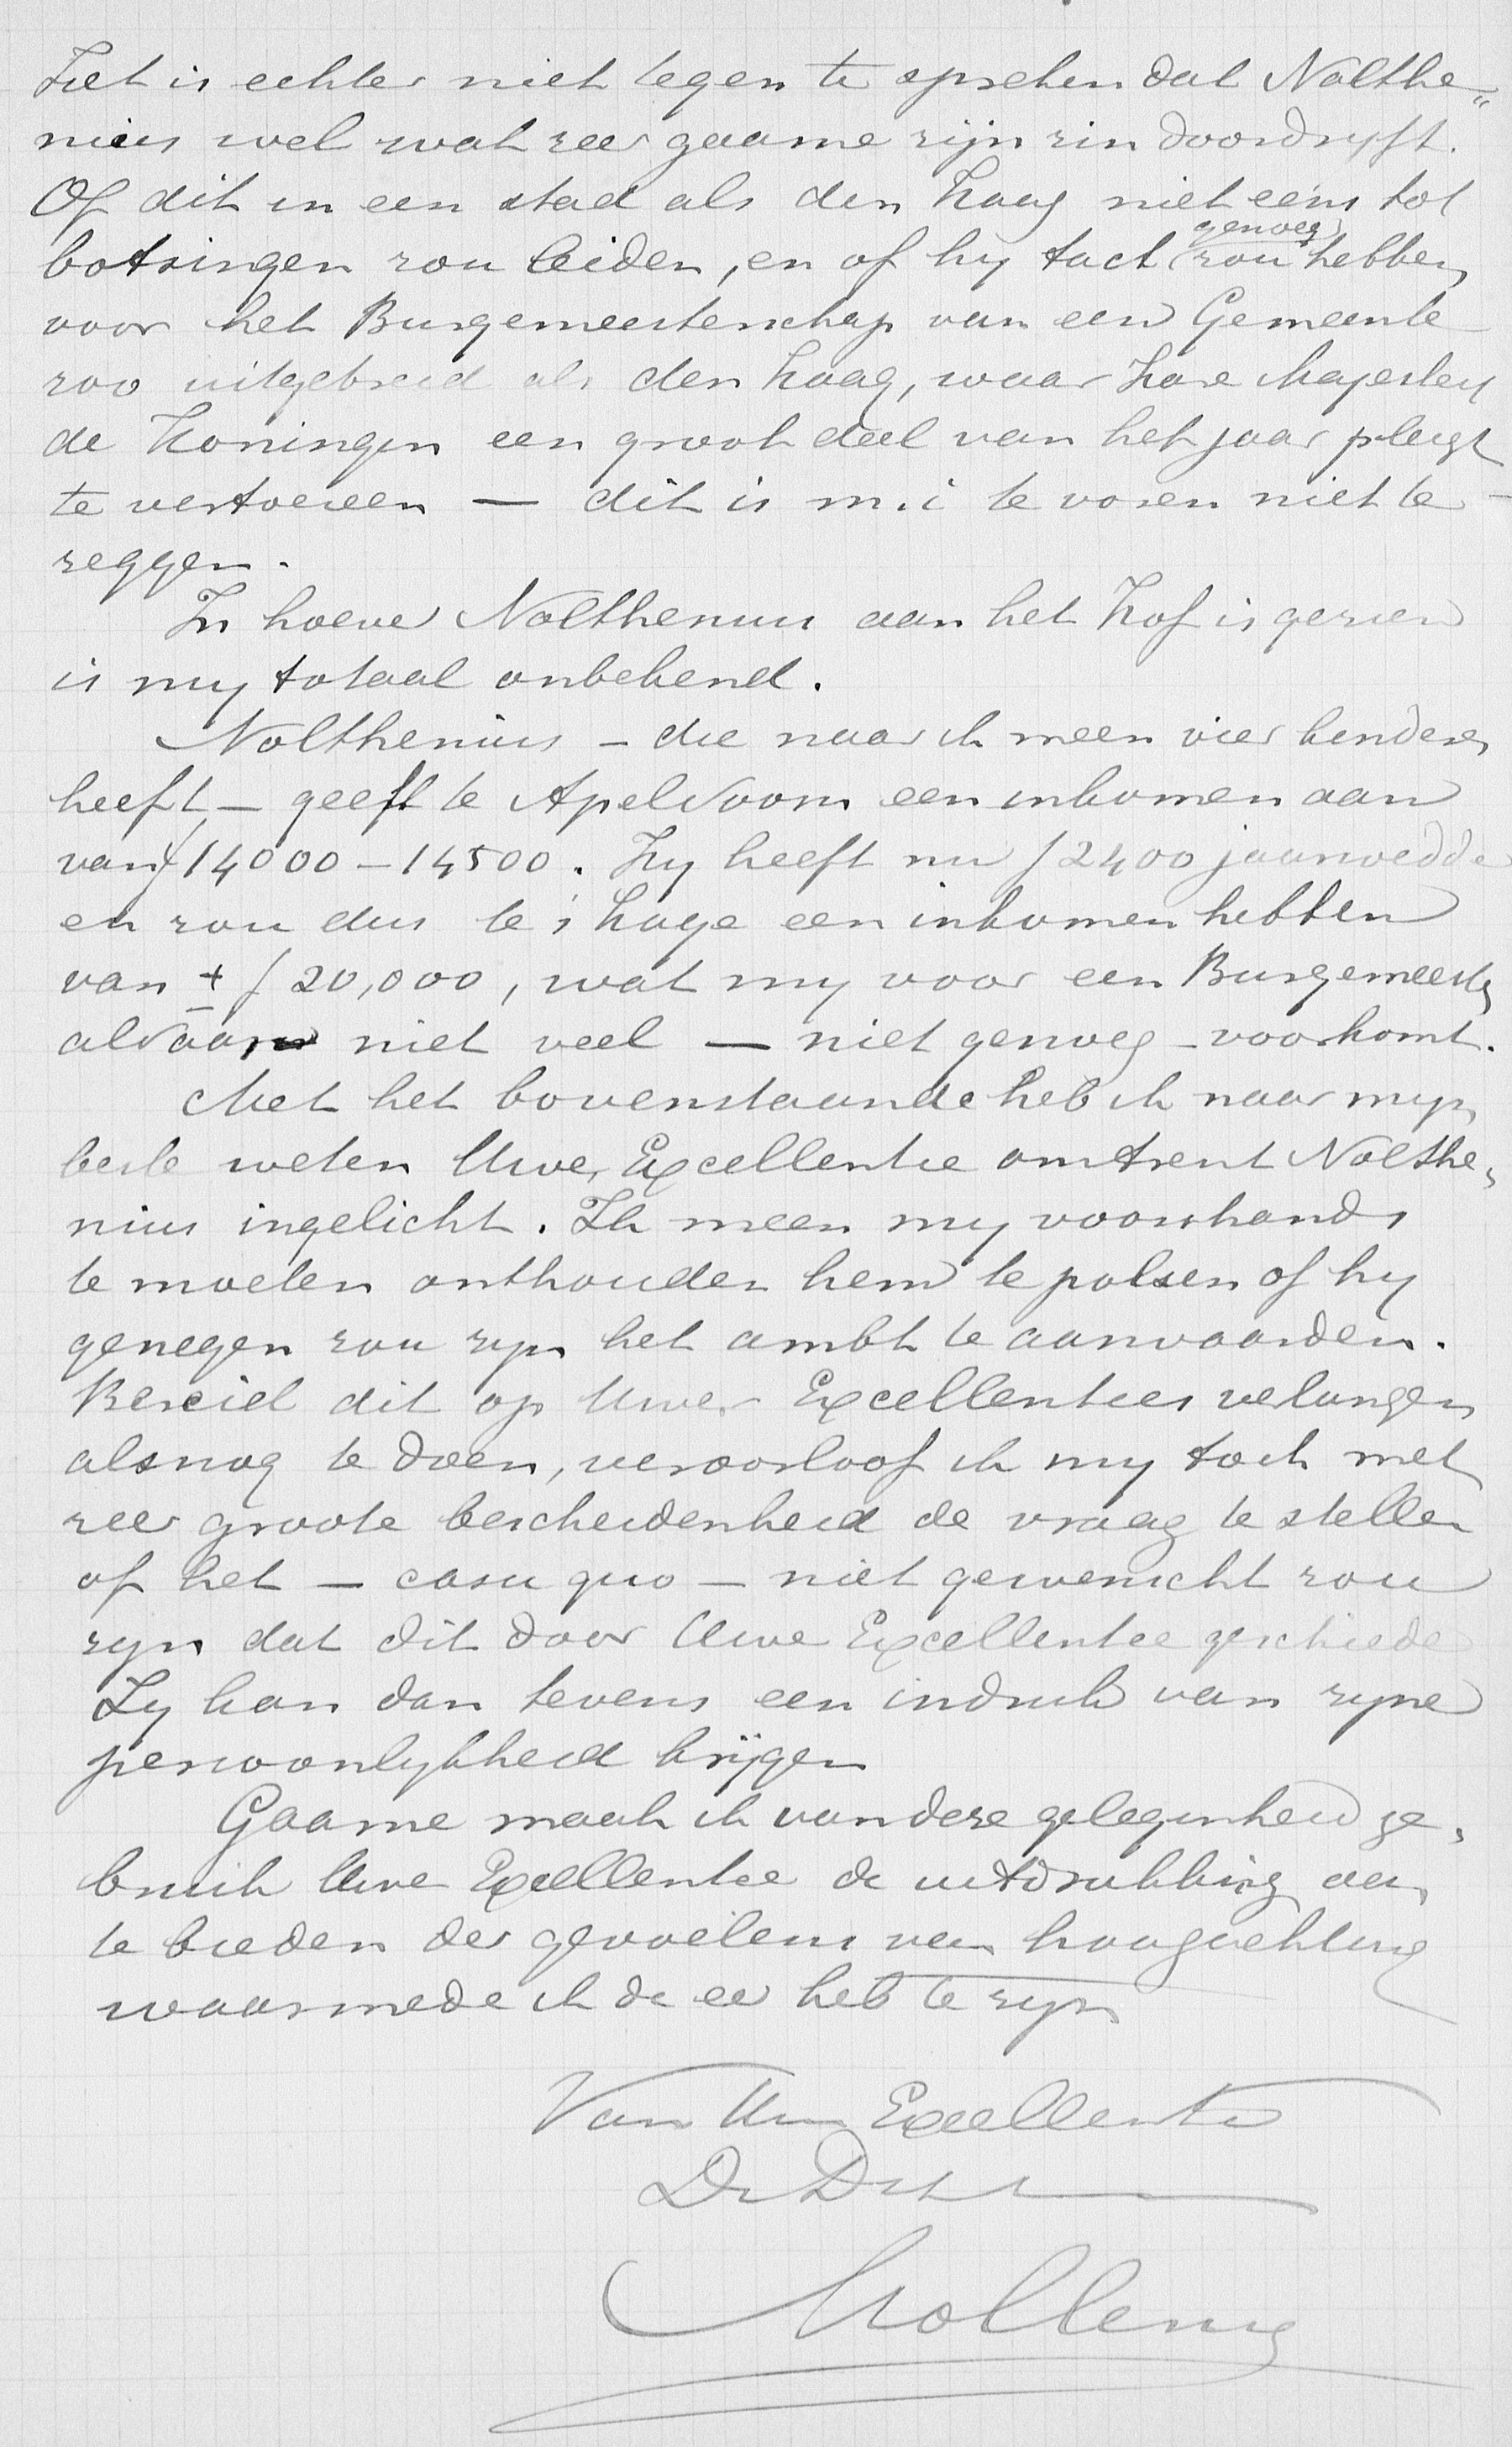 Het is echter niet tegen te spreken dat Nolthe„
nius wel wat zeer gaarne zijn zin doordryft.
Of dit in een stad als den Haag niet eens tot
botsingen zou leiden, en of hy tact genoeg zou hebben
voor het Burgemeesterschap van een Gemeente
zoo uitgebreid als den Haag, waar Hare Majesteit
de Koningin een groot deel van het jaar pleegt
te vertoeven — dit is m.i te voren niet te
zeggen.
In hoever Nolthenius aan het Hof is gezien
is my totaal onbekend.
Nolthenius – die naar ik meen vier kinderen
heeft, – geeft te Apeldoorn een inkomen aan
van ƒ 14000 – 14500. Hy heeft nu ƒ 2400 jaarwedde
en zou dus te 's Hage een inkomen hebben
van ± ƒ 20,000, wat my voor een Burgemeester
aldaar niet veel — niet genoeg – voorkomt.
Met het bovenstaande heb ik naar myn
beste weten Uwe Excellentie omtrent Nolthe„
nius ingelicht. Ik meen my voorshands
te moeten onthouden hem te polsen of hy
genegen zou zyn het ambt te aanvaarden.
Bereid dit op Uwer Excellenties verlangen
alsnog te doen, veroorloof ik my toch met
zeer groote bescheidenheid de vraag te stellen
of het — casu quo — niet gewenscht zou
zyn dat dit door Uwe Excellentie geschiede
Zy kan dan tevens een indruk van zyne
persoonlykheid krijgen
Gaarne maak ik van deze gelegenheid ge„
bruik Uwe Excellentie de uitdrukking aan
te bieden der gevoelens van hoogachting
waarmede ik de eer heb te zyn
Van Uwe Excellentie
De Dr
Mollerus